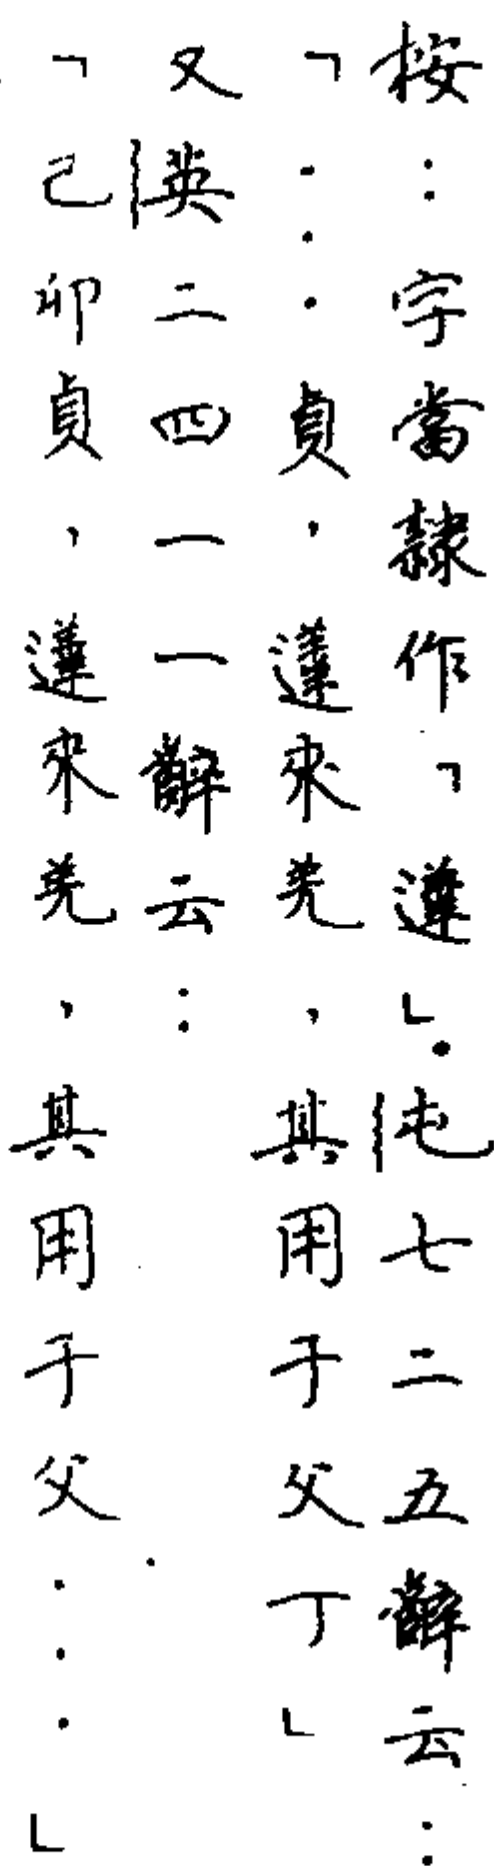 按：字當隸作「」。屯七二五辭云：
「...貞，來羌，其用于父丁」
又英二四一一辭云：
「己卯貞，來羌，其用于父...」